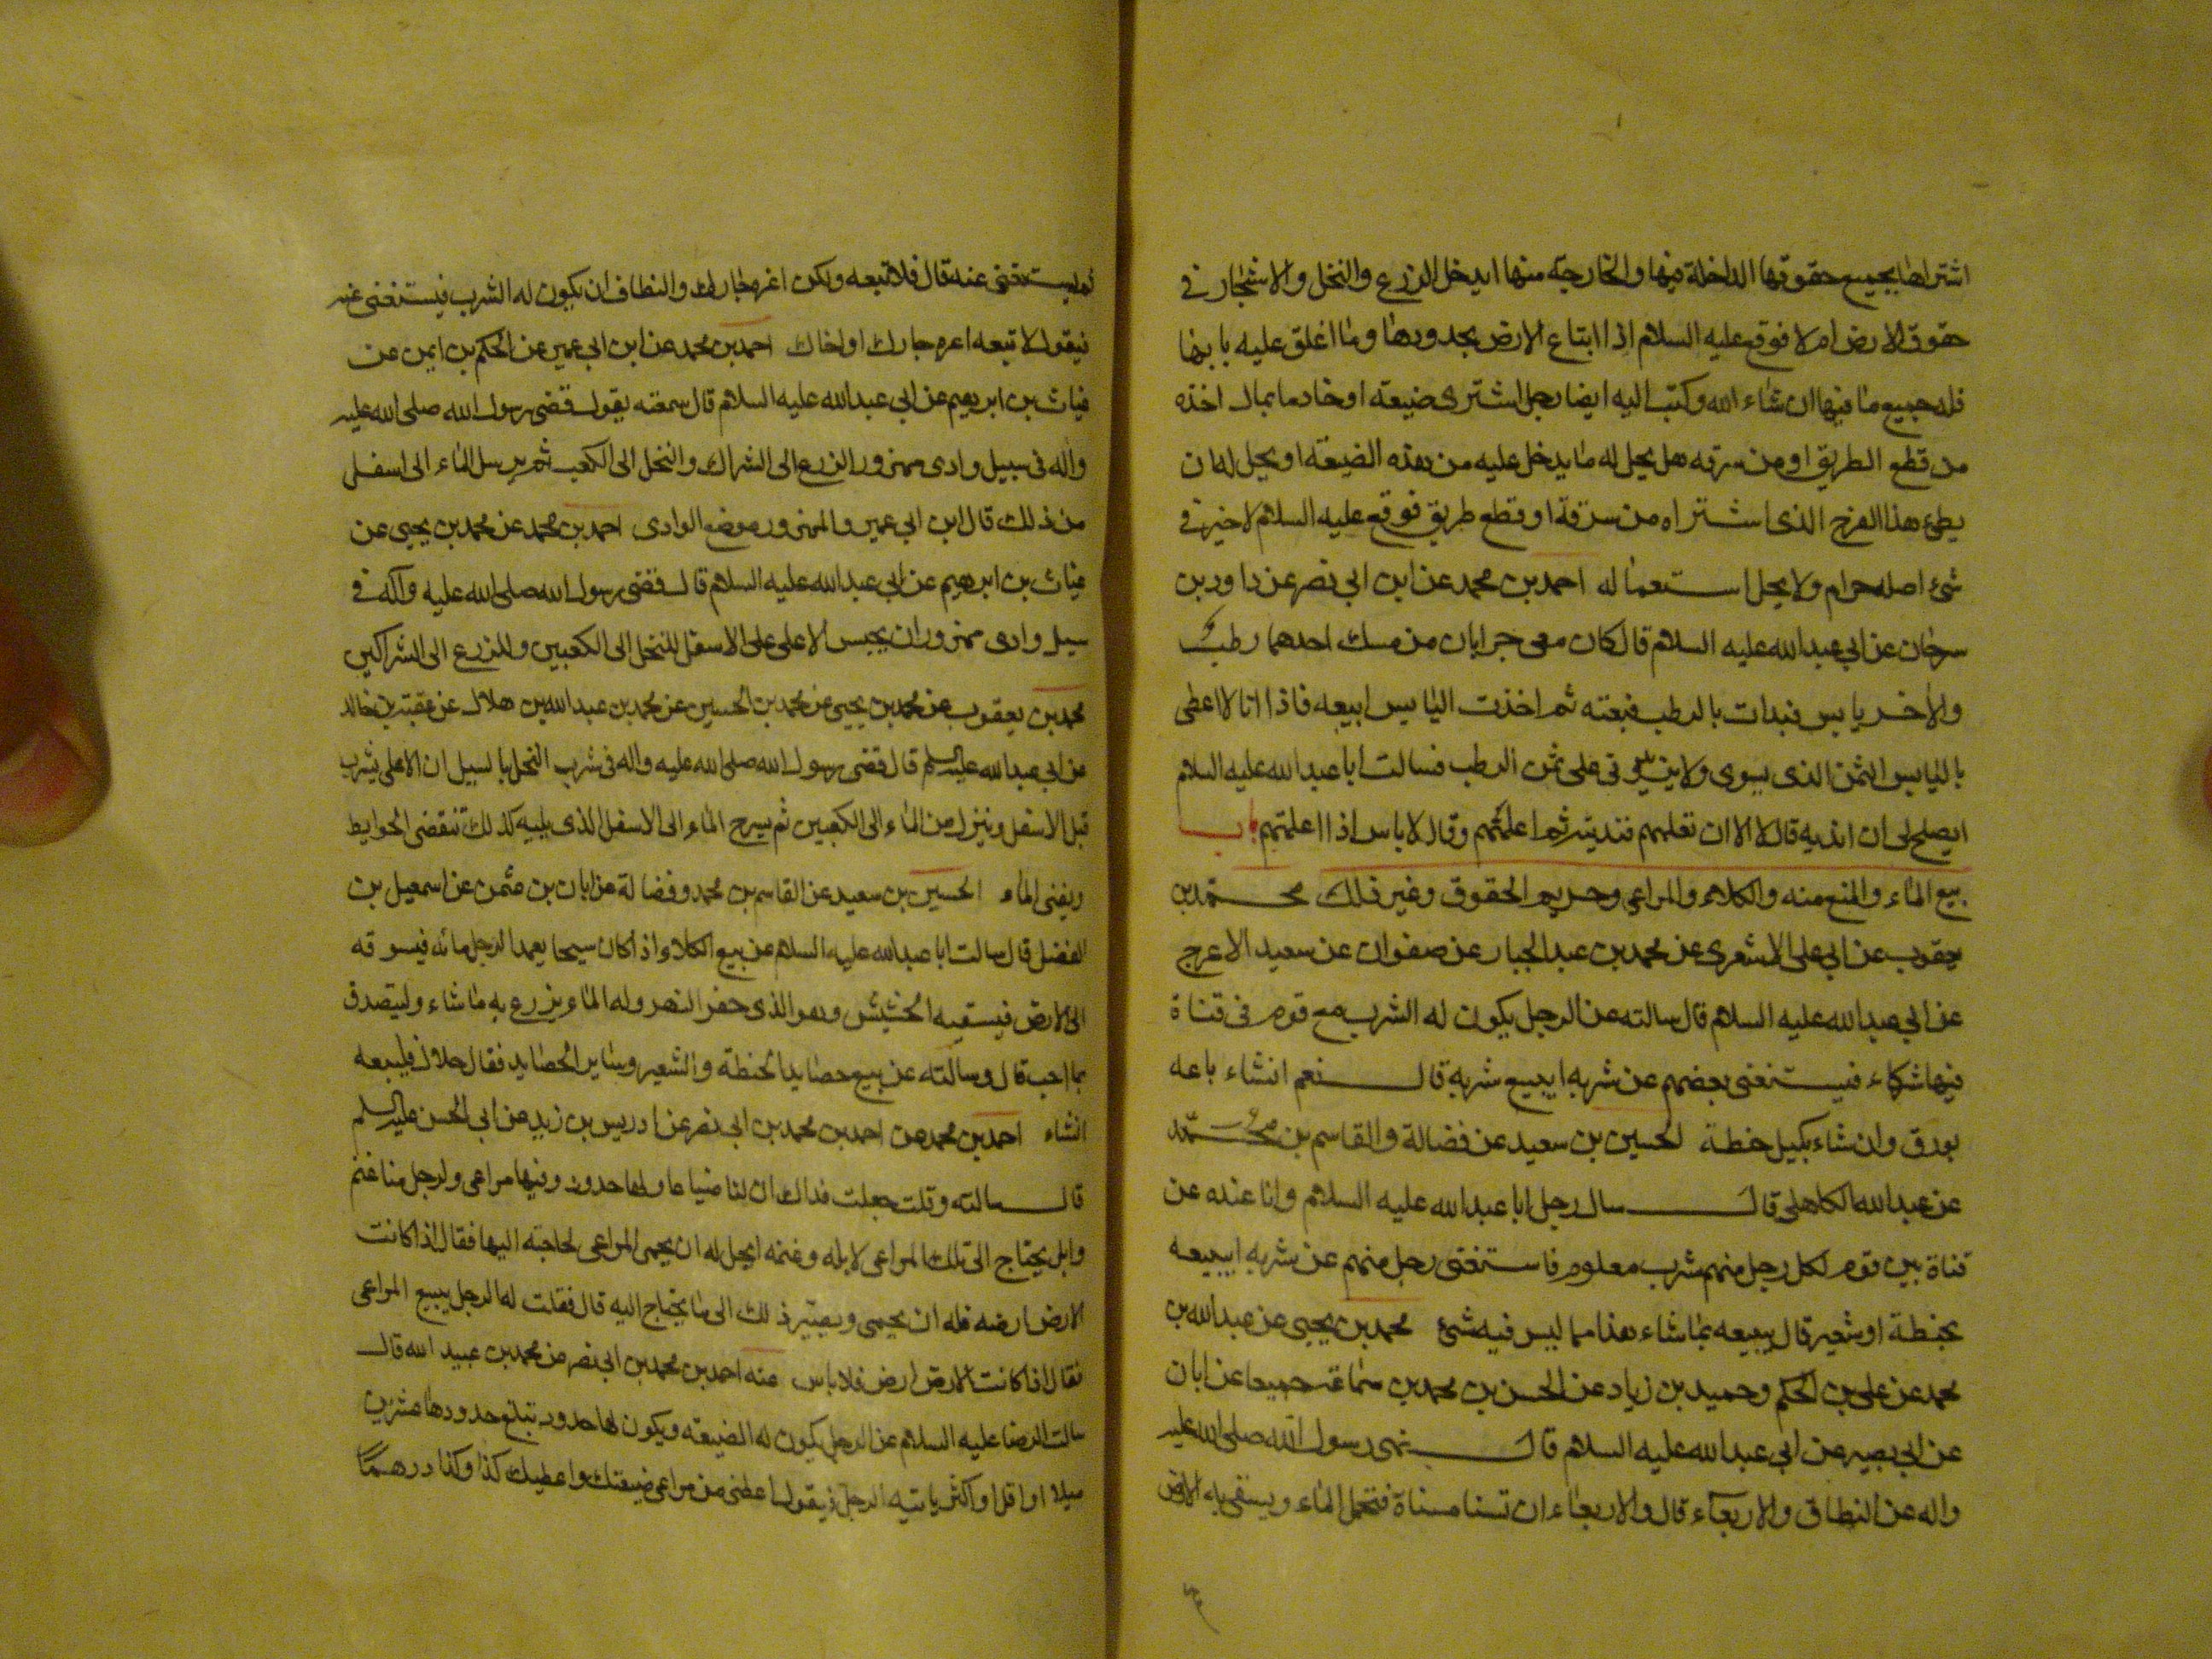 اشتراها بجميع حقوقها الداخلة فيها والخارجة منها ايدخل الزرع والنخل والاشجار في
حقوق الارض ام لا فوقع عليه السلام اذا ابتاع الارض بحدودها وما اغلق عليه بابها
فله جميع ما فيها ان شاء الله وكتب اليه ايضا رجل اشترى ضيعة او خادما بمال اخذه
من قطع الطريق او من سرقه هل يحل له ما يدخل عليه من هذه الضيعة او يحل له ان
يطئ هذا الفرج الذى اشتراه من سرقة او قطع طريق فوقع عليه السلام لا خير في
شئ اصله حرام ولا يحل استعماله احمد بن محمد عن ابن ابي نصر عن داود بن
سرحان عن ابي عبد الله عليه السلام قال كان معى جرابان من مسك احدهما رطب
والاخر يابس فبدات بالرطب فبعته ثم اخذت اليابس ابيعه فاذا انا لا اعطى
باليابس الثمن الذى يسوى ولا يزيدونى على ثمن الرطب فسالت ابا عبد الله عليه السلام
ايصلح لى ان انديه قال لا الا ان تعلمهم فنديته ثم اعلمتهم وقال لا باس اذا اعلمتهم باب
بيع الماء والمنع منه والكلاء والمراعى وحريم الحقوق وغير ذلك محمد بن
يعقوب عن ابي على الاشعرى عن محمد بن عبد الجبار عن صفوان عن سعيد الاعرج
عن ابي عبد الله عليه السلام قال سالته عن الرجل يكون له الشرب مع قوم فى قناة
فيها شركاء فيستغنى بعضهم عن شربه ايبيع شربه قال نعم انشاء باعه
بورق وان شاء بكيل حنطة الحسين بن سعيد عن فضالة والقاسم بن محمد
عن عبد الله الكاهلى قال سال رجل ابا عبد الله عليه السلام وانا عنده عن
قناة بين قوم لكل رجل منهم شرب معلوم فاستغنى رجل منهم عن شربه ايبيعه
بحنطة او شعير قال يبيعه بما شاء هذا مما ليس فيه شئ محمد بن يحيى عن عبد الله بن
محمد عن على بن الحكم وحميد بن زياد عن الحسن بن محمد بن سماعة جميعا عن ابان
عن ابي بصير عن ابي عبد الله عليه السلام قال نهى رسول الله صلى الله عليه
واله عن النطاق والاربعاء قال والاربعاء ان تسنا مسناة فتحمل الماء ويسقى به الارض
ثم يستغنى عنه قال فلا تبعه ولكن اعره جارك والنطاف ان يكون له الشرب فيستغنى عنه
فيقول لا تبعه اعره جارك او اخاك احمد بن محمد عن ابن ابي عمير عن الحكم بن ايمن عن
غياث بن ابرهيم عن ابي عبد الله عليه السلام قال سمعته يقول قضى رسول الله صلى الله عليه
واله فى سبيل وادى مهزور الزرع الى الشراك والنخل الى الكعب ثم يرسل الماء الى اسفل
من ذلك قال ابن ابي عمير والمهزور موضع الوادى احمد بن محمد عن محمد بن يحيى عن
غياث بن ابرهيم عن ابي عبد الله عليه السلام قال قضى رسول الله صلى الله عليه وآله فى
سيل وادى مهزور ان يحبس الاعلى على الاسفل للنخل الى الكعبين وللزرع الى الشراكين
محمد بن يعقوب عن محمد بن يحيى عن محمد بن الحسين عن محمد بن عبد الله بن هلال عن عقبة بن خالد
عن ابي عبد الله عليه السلم قال قضى رسول الله صلى الله عليه واله فى شرب النخل بالسيل ان الاعلى يشرب
قبل الاسفل وينزل من الماء الى الكعبين ثم يسرح الماء الى الاسفل الذى يليه كذلك تنقضى الحوايط
ويفنى الماء الحسين بن سعيد عن القاسم بن محمد وفضالة عن ابان بن عثمن عن اسمعيل بن
الفضل قال سالت ابا عبد الله عليه السلام عن بيع الكلاء اذا كان سيحا يعمد الرجل مائه فيسوقه
الى الارض فيسقيه الحشيش وهو الذى حفر النهر وله الماء يزرع به ما شاء وليتصدق
بما احب قال وسالته عن بيع حصايد الحنطة والشعير وساير الحصايد فقال حلال فليبعه
انشاء احمد بن محمد عن احمد بن محمد بن ابي نصر عن ادريس بن زيد عن ابي الحسن عليه السلم
قال سالته وقلت جعلت فداك ان لنا ضياعا ولها حدود وفيها مراعى ولرجل منا غنم
وابل يحتاج الى تلك المراعى لابله وغنمه ايحل له ان يحمى المراعى لحاجته اليها فقال اذا كانت
الارض ارضه فله ان يحمى ويصير ذلك الى ما يحتاج اليه قال فقلت له الرجل يبيع المراعى
فقال اذا كانت الارض ارضه فلا باس عنه احمد بن محمد بن ابي نصر عن محمد بن عبيد الله قال
سالت الرضا عليه السلام عن الرجل يكون له الضيعة ويكون لها حدود تبلغ حدودها عشرين
ميلا او اقل او اكثر ياتيه الرجل فيقول اعطنى من مراعى ضيعتك واعطيك كذا وكذا درهما